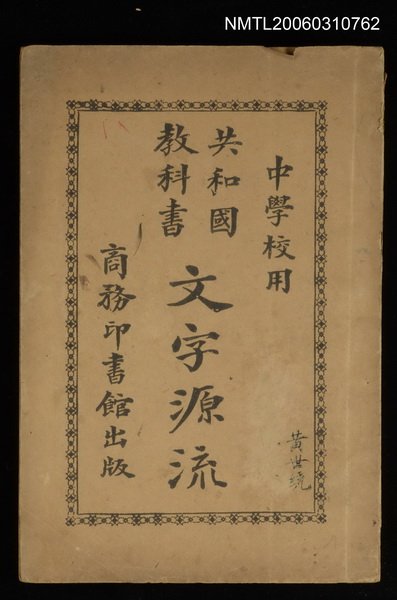 NMTL20060310762
中學校用
共和國
教科書
文字源流
商務印書館出版
黃世繞